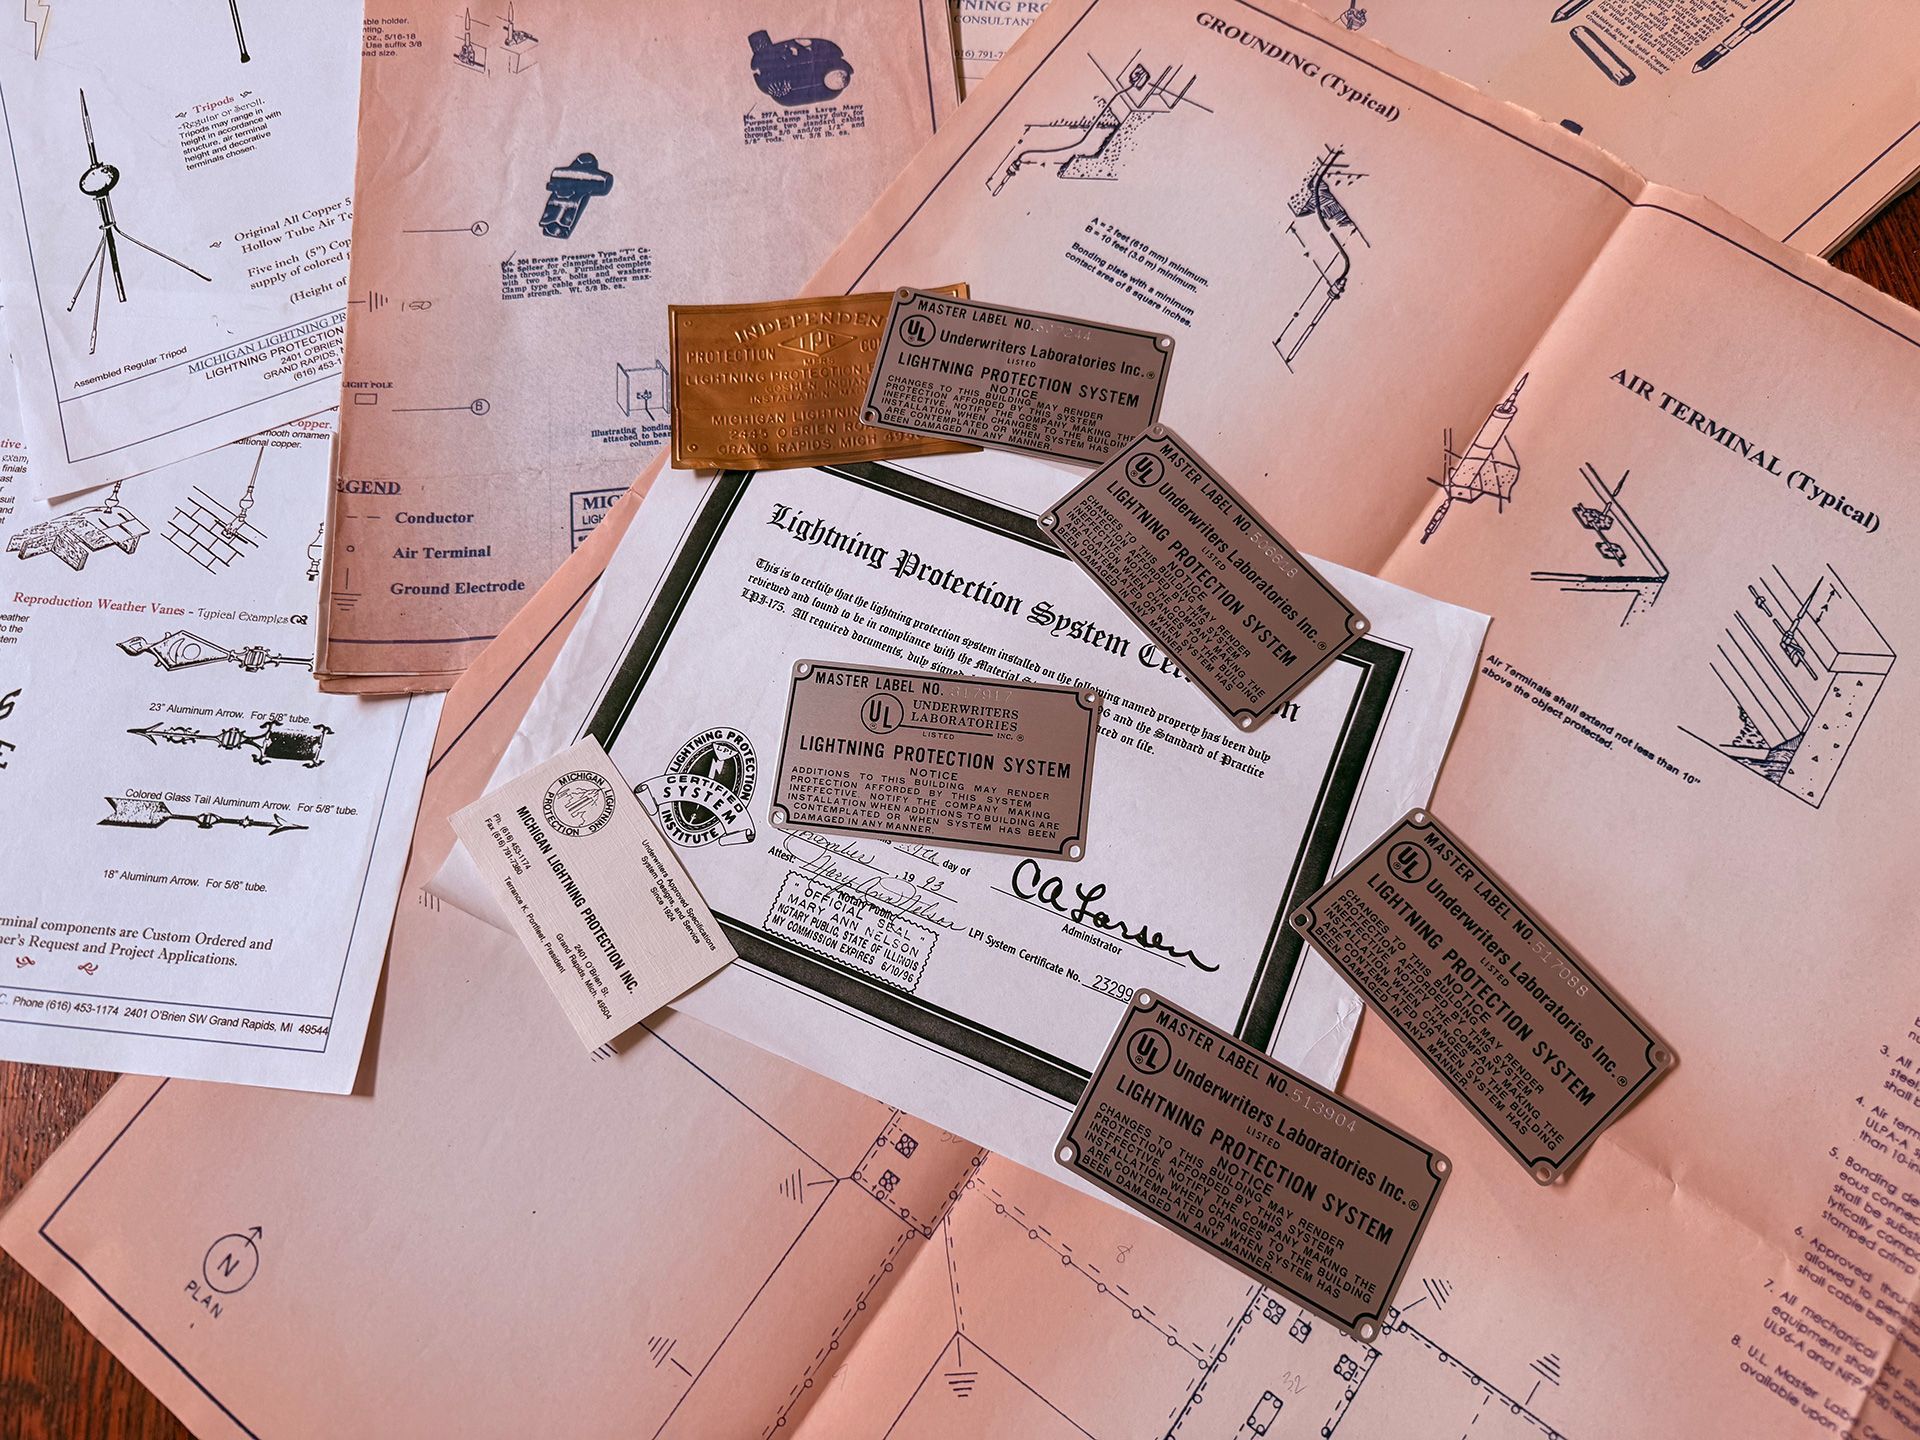 Tripods
-Regular or Scroll.
Tripods may range in
height in accordance with
structure, air terminal
height and decorative
terminals chosen.
Original All Copper 5
Hollow Tube Air Te
Five inch (5") Cop
supply of colored
(Height of
Assembled Regular Tripod
MICHIGAN LIGHTNING PR
LIGHTNING PROTECTION
2401 O'BRIEN
GRAND RAPIDS,
(616) 453-1
Copper.
smooth ornamen
ditional copper.
Reproduction Weather Vanes - Typical Examples
23" Aluminum Arrow. For 5/8" tube.
Colored Glass Tail Aluminum Arrow. For 5/8" tube.
18" Aluminum Arrow. For 5/8" tube.
rminal components are Custom Ordered and
ner's Request and Project Applications.
C. Phone (616) 453-1174 2401 O'Brien SW Grand Rapids, MI 49544
able holder.
nting.
oz., 5/16-18
Use suffix 3/8
ead size.
No. 297A Bronze Large Many
Purpose Clamp heavy duty, for
clamping two standard cables
through 2/0 and/or 1/2" and
5/8" rods. Wt. 3/8 lb. ea.
No. 304 Bronze Pressure Type "T" Ca-
ble Splicer for clamping standard ca-
bles through 2/0. Furnished complete
with two hex bolts and washers.
Clamp type cable action offers max-
imum strength. Wt. 5/8 lb. ea.
A
150
LIGHT POLE
B
Illustrating bonding
attached to bea
column.
EGENd
Conductor
Air Terminal
Ground Electrode
MIC
LIGH
NING PRO
CONSULTANT
616) 791-7
GROUNDING (Typical)
A = 2 feet (610 mm) minimum.
B = 10 feet (3.0 m) minimum.
Bonding plate with a minimum
contact area of 8 square inches.
AIR TERMINAL (Typical)
Air Terminals shall extend not less than 10"
above the object protected.
INDEPENDEN
PROTECTION LPC CO
MFRS
LIGHTNING PROTECTION
GOSHEN INDIAN
INSTALLATION
MICHIGAN LIGHTNIN
2445 O'BRIEN RO
GRAND RAPIDS MICH
MASTER LABEL NO.
UL Underwriters Laboratories Inc.®
LISTED
LIGHTNING PROTECTION SYSTEM
NOTICE
CHANGES TO THIS BUILDING MAY RENDER
PROTECTION AFFORDED BY THIS SYSTEM
INEFFECTIVE. NOTIFY THE COMPANY MAKING THE
INSTALLATION WHEN CHANGES TO THE BUILDIN
ARE CONTEMPLATED OR WHEN SYSTEM HAS
BEEN DAMAGED IN ANY MANNER.
MASTER LABEL NO. 506618
UL Underwriters Laboratories Inc.®
LISTED
LIGHTNING PROTECTION SYSTEM
NOTICE
CHANGES TO THIS BUILDING MAY RENDER
PROTECTION AFFORDED BY THIS SYSTEM
INEFFECTIVE. NOTIFY THE COMPANY MAKING THE
INSTALLATION WHEN CHANGES TO THE BUILDING
ARE CONTEMPLATED OR WHEN SYSTEM HAS
BEEN DAMAGED IN ANY MANNER.
Lightning Protection System Ce
on
This is to certify that the lightning protection system installed on the following named property has been duly
reviewed and found to be in compliance with the Material S 96 and the Standard of Practice
LPI-175. All required documents, duly signed, aced on file.
LIGHTNING PROTECTION
LPI
CERTIFIED
SYSTEM
INSTITUTE
MASTER LABEL NO. 317917
UL UNDERWRITERS
LABORATORIES
INC.®
LISTED
LIGHTNING PROTECTION SYSTEM
NOTICE
ADDITIONS TO THIS BUILDING MAY RENDER
PROTECTION AFFORDED BY THIS SYSTEM
INEFFECTIVE. NOTIFY THE COMPANY MAKING
INSTALLATION WHEN ADDITIONS TO BUILDING ARE
CONTEMPLATED OR WHEN SYSTEM HAS BEEN
DAMAGED IN ANY MANNER.
day of
, 19 93
Attest:
Mary Ann Nelson
Notary Public
" OFFICIAL SEAL "
MARY ANN NELSON
NOTARY PUBLIC, STATE OF ILLINOIS
MY COMMISSION EXPIRES 6/10/96
CA Larsen
Administrator
LPI System Certificate No. 23299
MICHIGAN LIGHTNING PROTECTION
Underwriters Approved Specifications
System Designs, and Service
Since 1924
Ph. (616) 453-1174
Fax (616) 791-7380
MICHIGAN LIGHTNING PROTECTION INC.
2401 O'Brien St.
Grand Rapids, Mich. 49504
Terrance K. Portfleet, President
MASTER LABEL NO. 517088
UL Underwriters Laboratories Inc.®
LISTED
LIGHTNING PROTECTION SYSTEM
NOTICE
CHANGES TO THIS BUILDING MAY RENDER
PROTECTION AFFORDED BY THIS SYSTEM
INEFFECTIVE. NOTIFY THE COMPANY MAKING THE
INSTALLATION WHEN CHANGES TO THE BUILDING
ARE CONTEMPLATED OR WHEN SYSTEM HAS
BEEN DAMAGED IN ANY MANNER.
MASTER LABEL NO. 513904
UL Underwriters Laboratories Inc.®
LISTED
LIGHTNING PROTECTION SYSTEM
NOTICE
CHANGES TO THIS BUILDING MAY RENDER
PROTECTION AFFORDED BY THIS SYSTEM
INEFFECTIVE. NOTIFY THE COMPANY MAKING THE
INSTALLATION WHEN CHANGES TO THE BUILDING
ARE CONTEMPLATED OR WHEN SYSTEM HAS
BEEN DAMAGED IN ANY MANNER.
N
PLAN
8
32
3. All
steel
shall b
4. Air term
ULPA-A s
than 10-in
5. Bonding de
eous connec
shall be subst
lytically compa
stamped crimp
6. Approved thru-
allowed to penet
shall cable be
7. All mechanical
equipment shall
UL96-A and NFPA
8. U.L. Master Labe
available upon